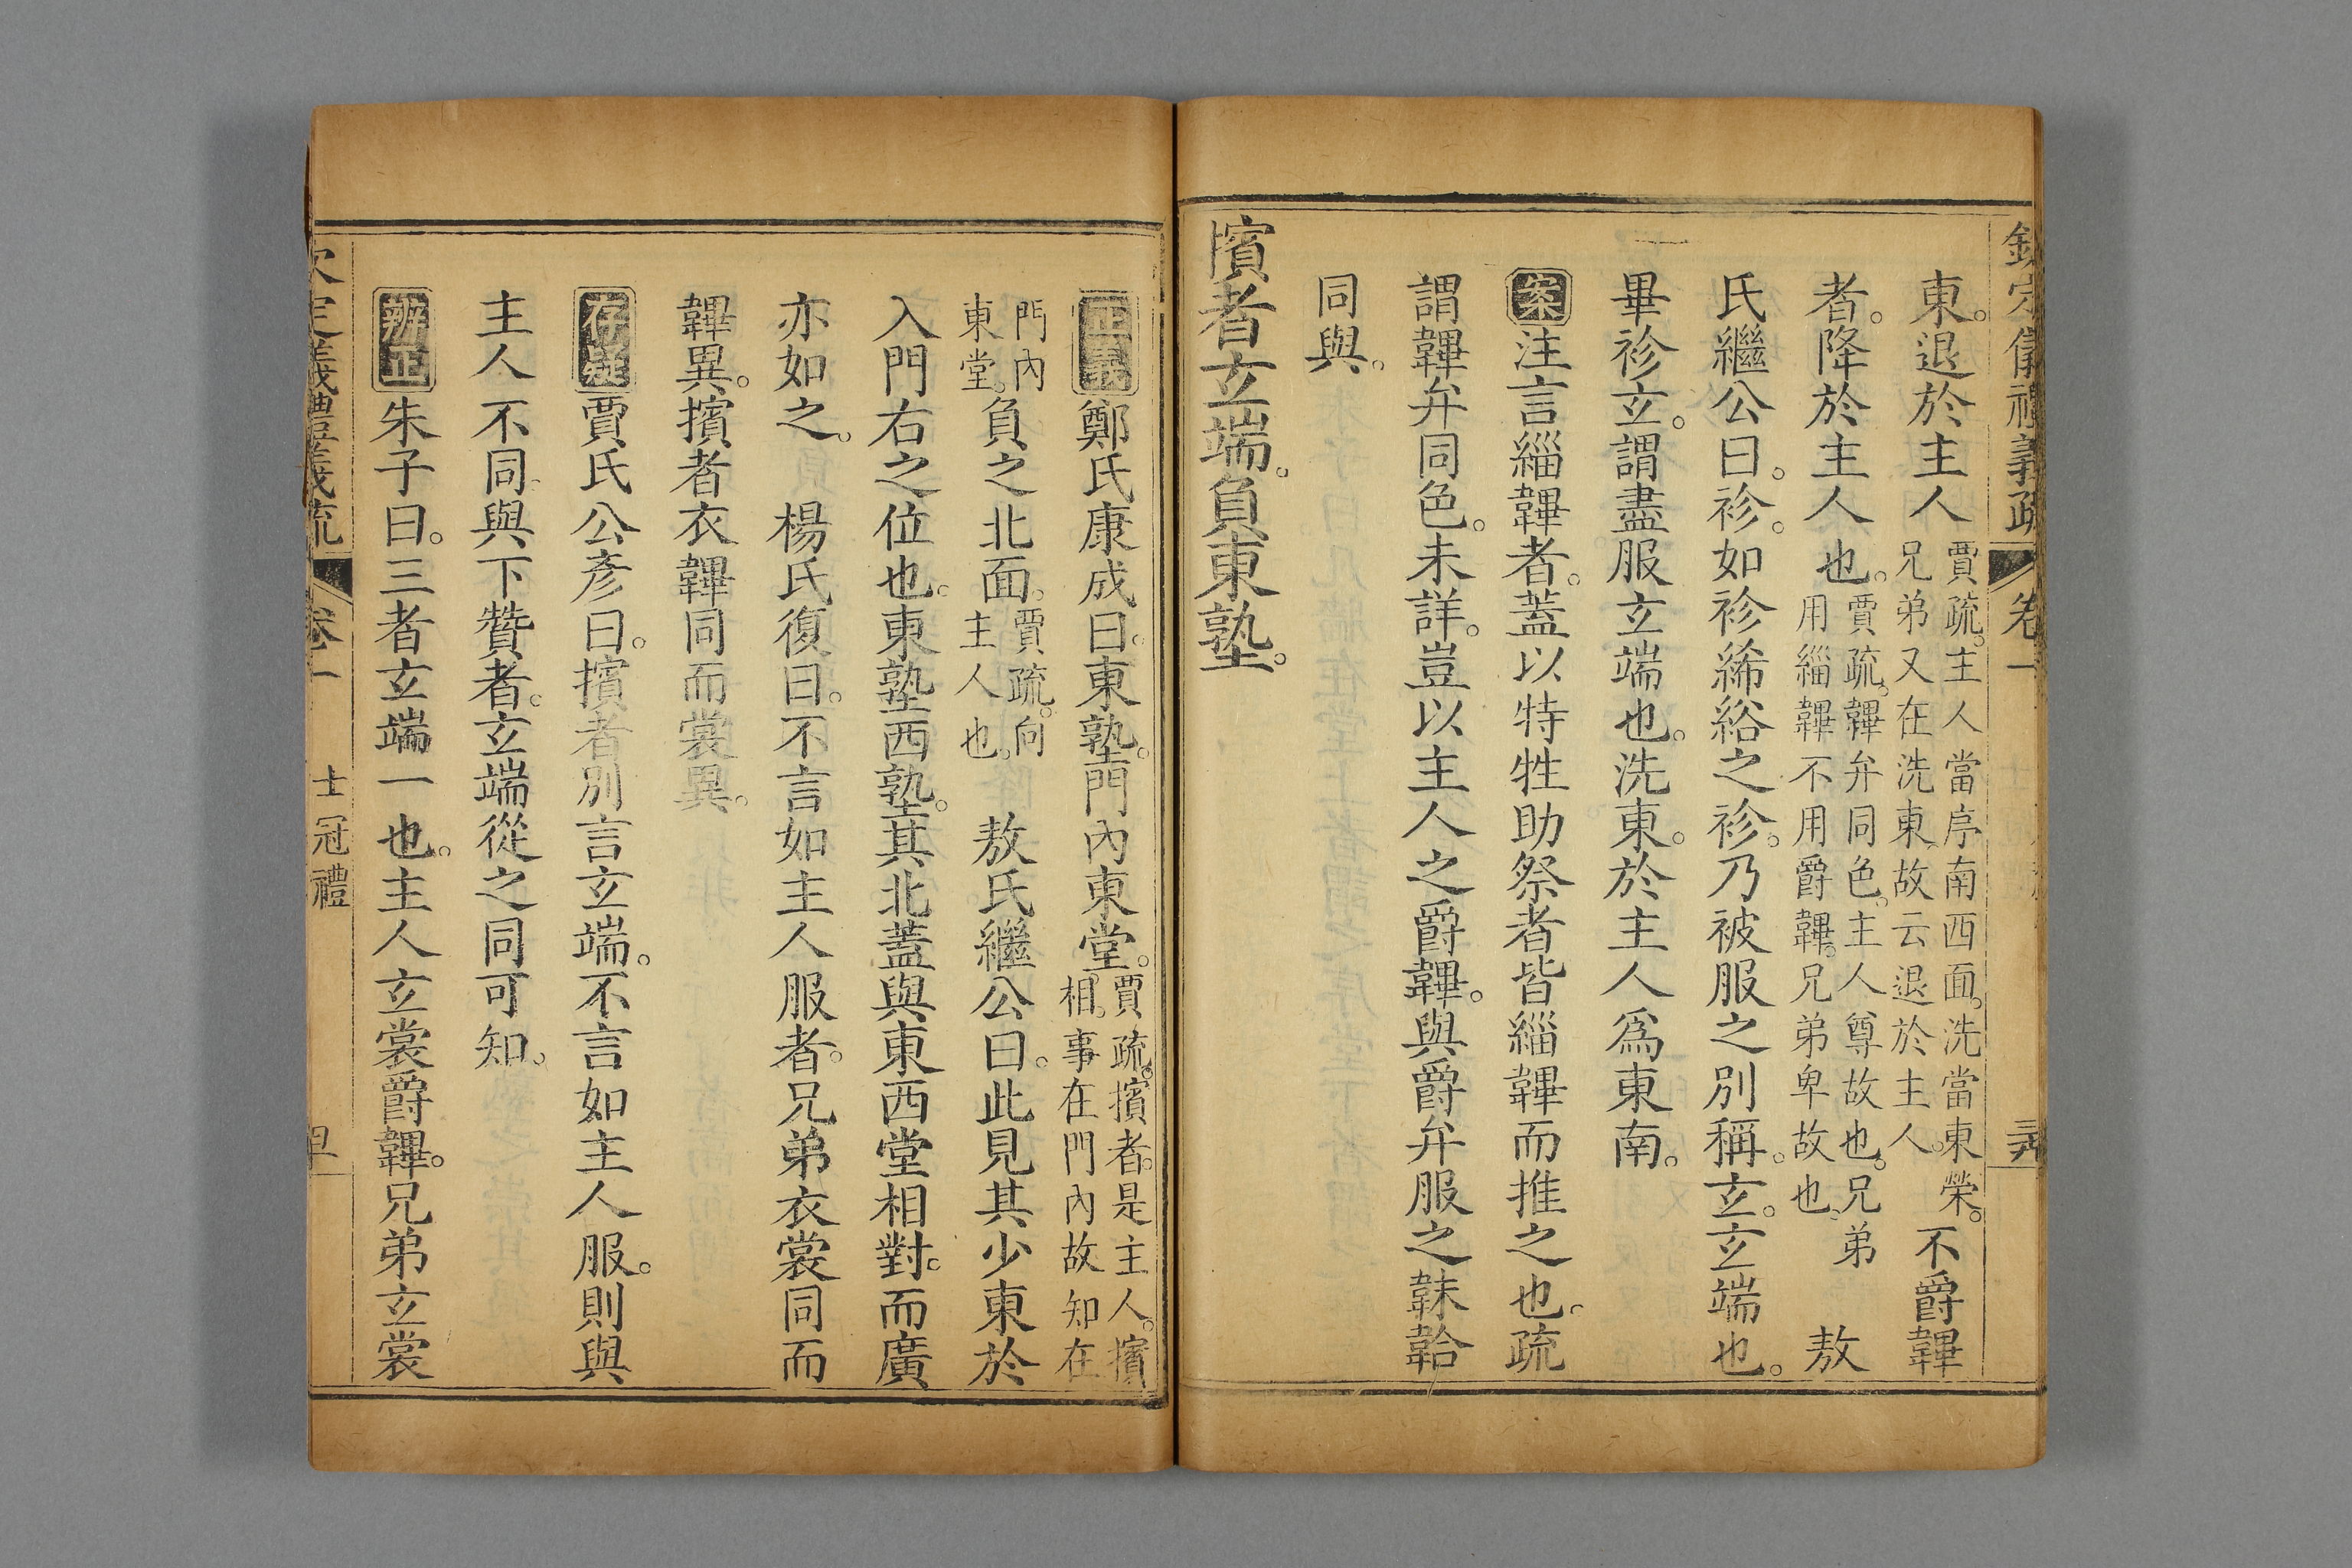 欽定儀禮義疏 卷一
東。退於主人賈疏。主人當序南西面。洗當東榮。兄弟又在洗東故云退於主人。不爵韠
者。降於主人也。賈疏。韠弁同色。主人尊故也。兄弟用緇韠不用爵韠。兄弟卑故也。敖
氏繼公曰。袗。如袗絺綌之袗。乃被服之別稱。玄。玄端也。
畢袗玄。謂盡服玄端也。洗東。於主人爲東南。
案注言緇韠者。蓋以特牲助祭者皆緇韠而推之也。疏
謂韠弁同色。未詳。豈以主人之爵韠。與爵弁服之韎韐
同與。
擯者玄端。負東塾。
正義鄭氏康成曰。東塾。門內東堂。賈疏。擯者。是主人。擯相。事在門內故知在
門內東堂。負之北面。賈疏。向主人也。敖氏繼公曰。此見其少東於
入門右之位也。東塾西塾。其北蓋與東西堂相對。而廣
亦如之。楊氏復曰。不言如主人服者。兄弟衣裳同而
韠異。擯者衣韠同而裳異。
存疑賈氏公彥曰。擯者別言玄端。不言如主人服。則與
主人不同。與下贊者。玄端從之同可知。
辨正朱子曰。三者玄端一也。主人玄裳爵韠。兄弟玄裳
欽定儀禮義疏 卷一 士冠禮